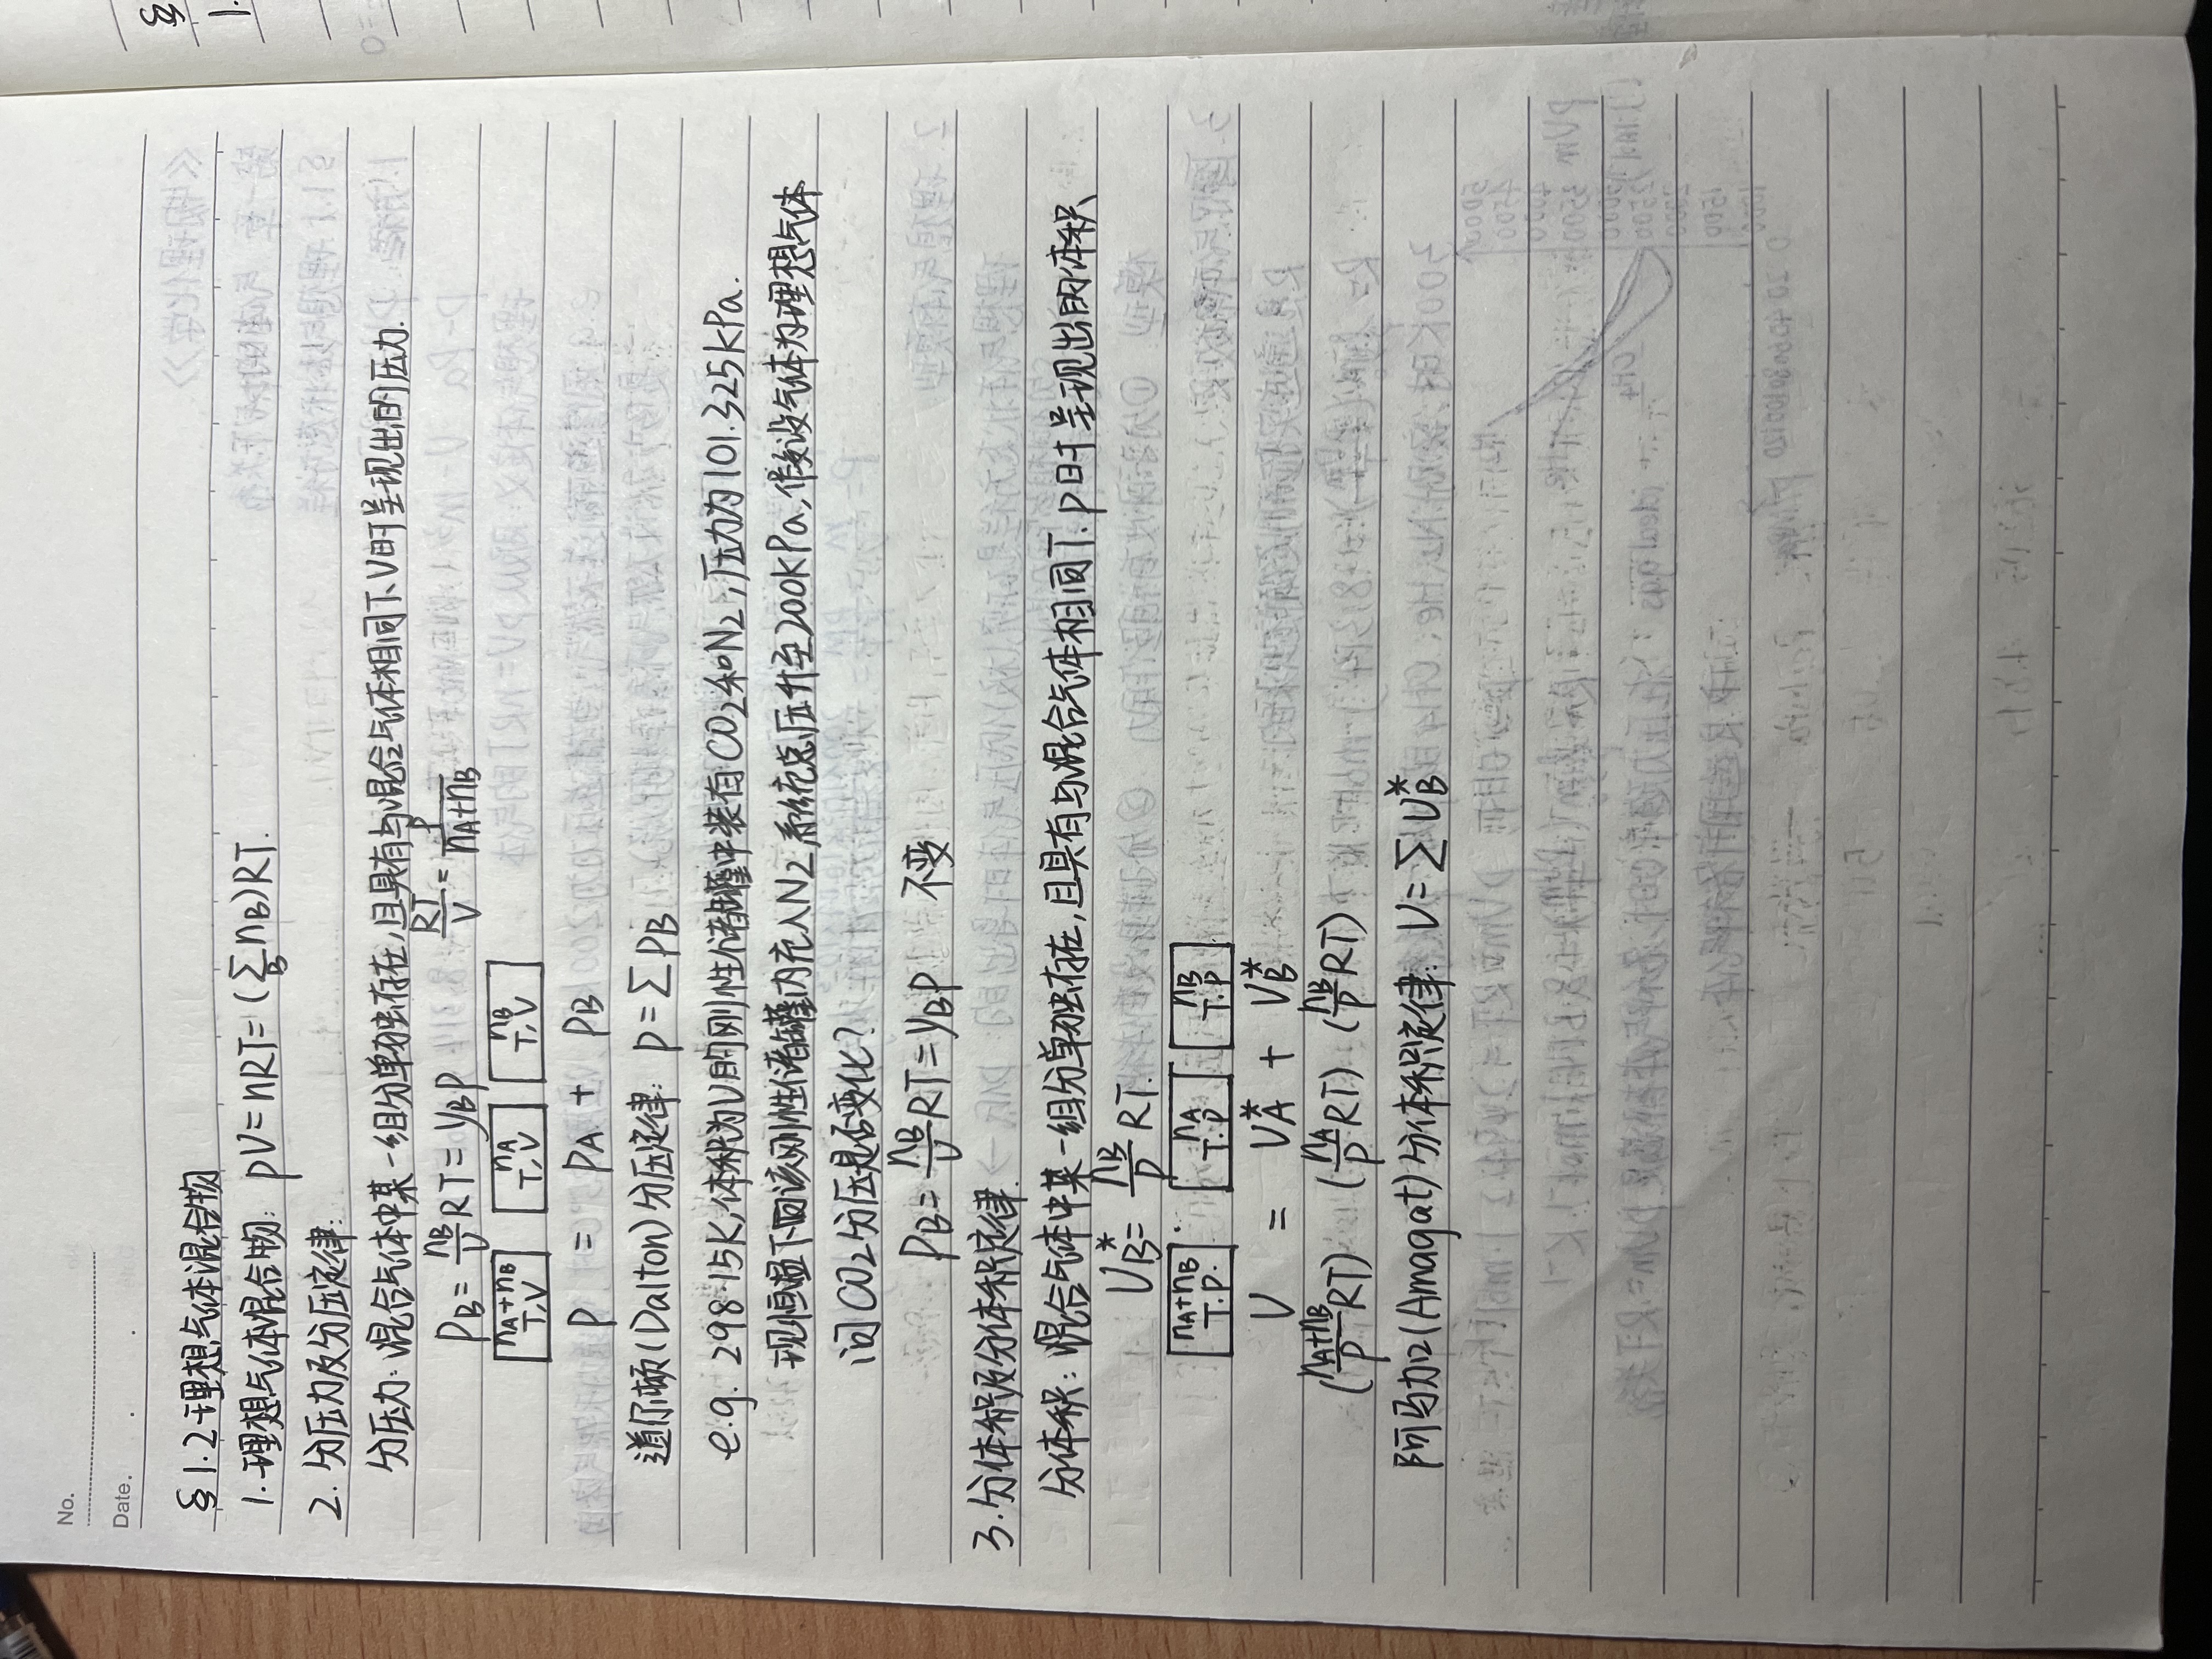 No.
Date.
§1.2 理想气体混合物
1. 理想气体混合物: pV=nRT=(∑_B n_B)RT.
2. 分压力及分压定律:
分压力: 混合气体中某一组分单独存在,且具有与混合气体相同T、V时呈现出的压力.
p_B = n_B/V RT = y_B p    RT/V = p/(n_A+n_B)
n_A+n_B    n_A    n_B
T,V    T,V    T,V
p = p_A + p_B
道尔顿(Dalton)分压定律: p=∑p_B
e.g. 298.15K,体积为V的刚性储罐中装有CO2和N2,压力为101.325kPa.
现恒温下向该刚性储罐内充入N2,系统总压升至200kPa,假设气体为理想气体
问CO2分压是否变化?
p_B = n_B/V RT = y_B p    不变
3. 分体积及分体积定律.
分体积: 混合气体中某一组分单独存在,且具有与混合气体相同T.p时呈现出的体积
V_B^* = n_B/p RT.
n_A+n_B    n_A    n_B
T.p.    T.p    T.p
V = V_A^* + V_B^*
((n_A+n_B)/p RT)    (n_A/p RT)    (n_B/p RT)
阿马加(Amagat)分体积定律: V=∑V_B^*